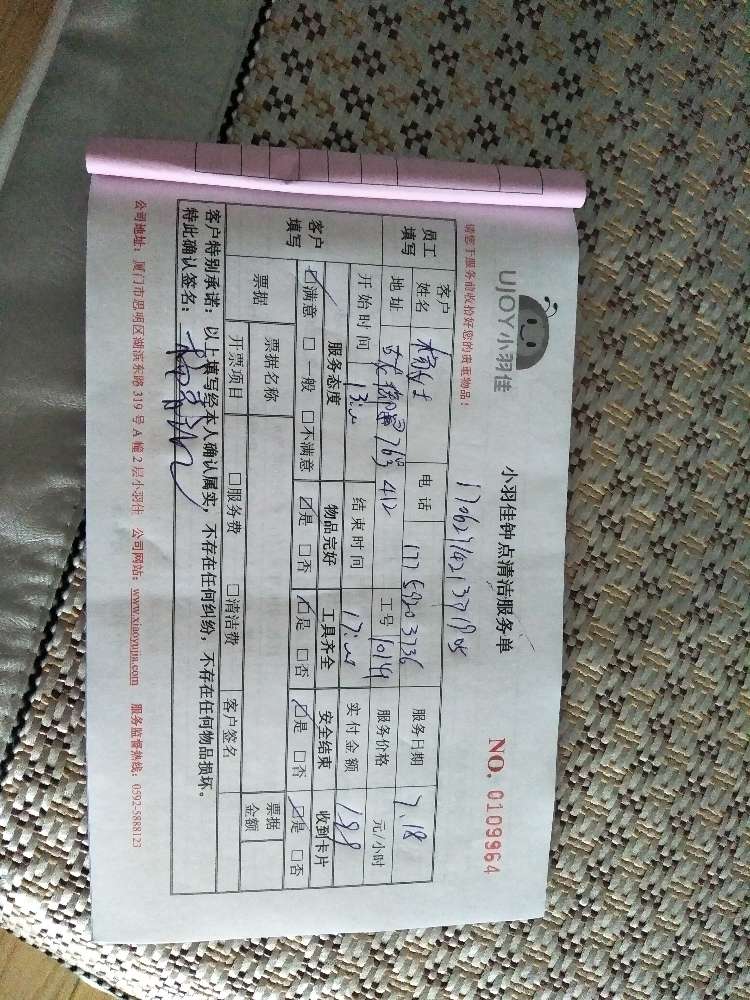 UJOY小羽佳
小羽佳钟点清洁服务单
NO. 0109964
请您于服务前收拾好您的贵重物品！
员工填写
客户姓名
电话
服务日期 7.18
地址
工号 1014
服务价格 元/小时
开始时间
结束时间
实付金额
客户填写
服务态度 物品完好 工具齐全 安全结束 收到卡片
☑满意 □一般 □不满意 ☑是 □否 ☑是 □否 ☑是 □否 ☑是 □否
票据 票据名称 票据金额
开票项目 □服务费 □清洁费 客户签名
客户特别承诺：以上填写经本人确认属实，不存在任何纠纷，不存在任何物品损坏。
特此确认签名：
公司地址：厦门市思明区湖滨东路 319 号 A 幢 2 层小羽佳 公司网站：www.xiaoyujia.com 服务监督热线：0592-5888123